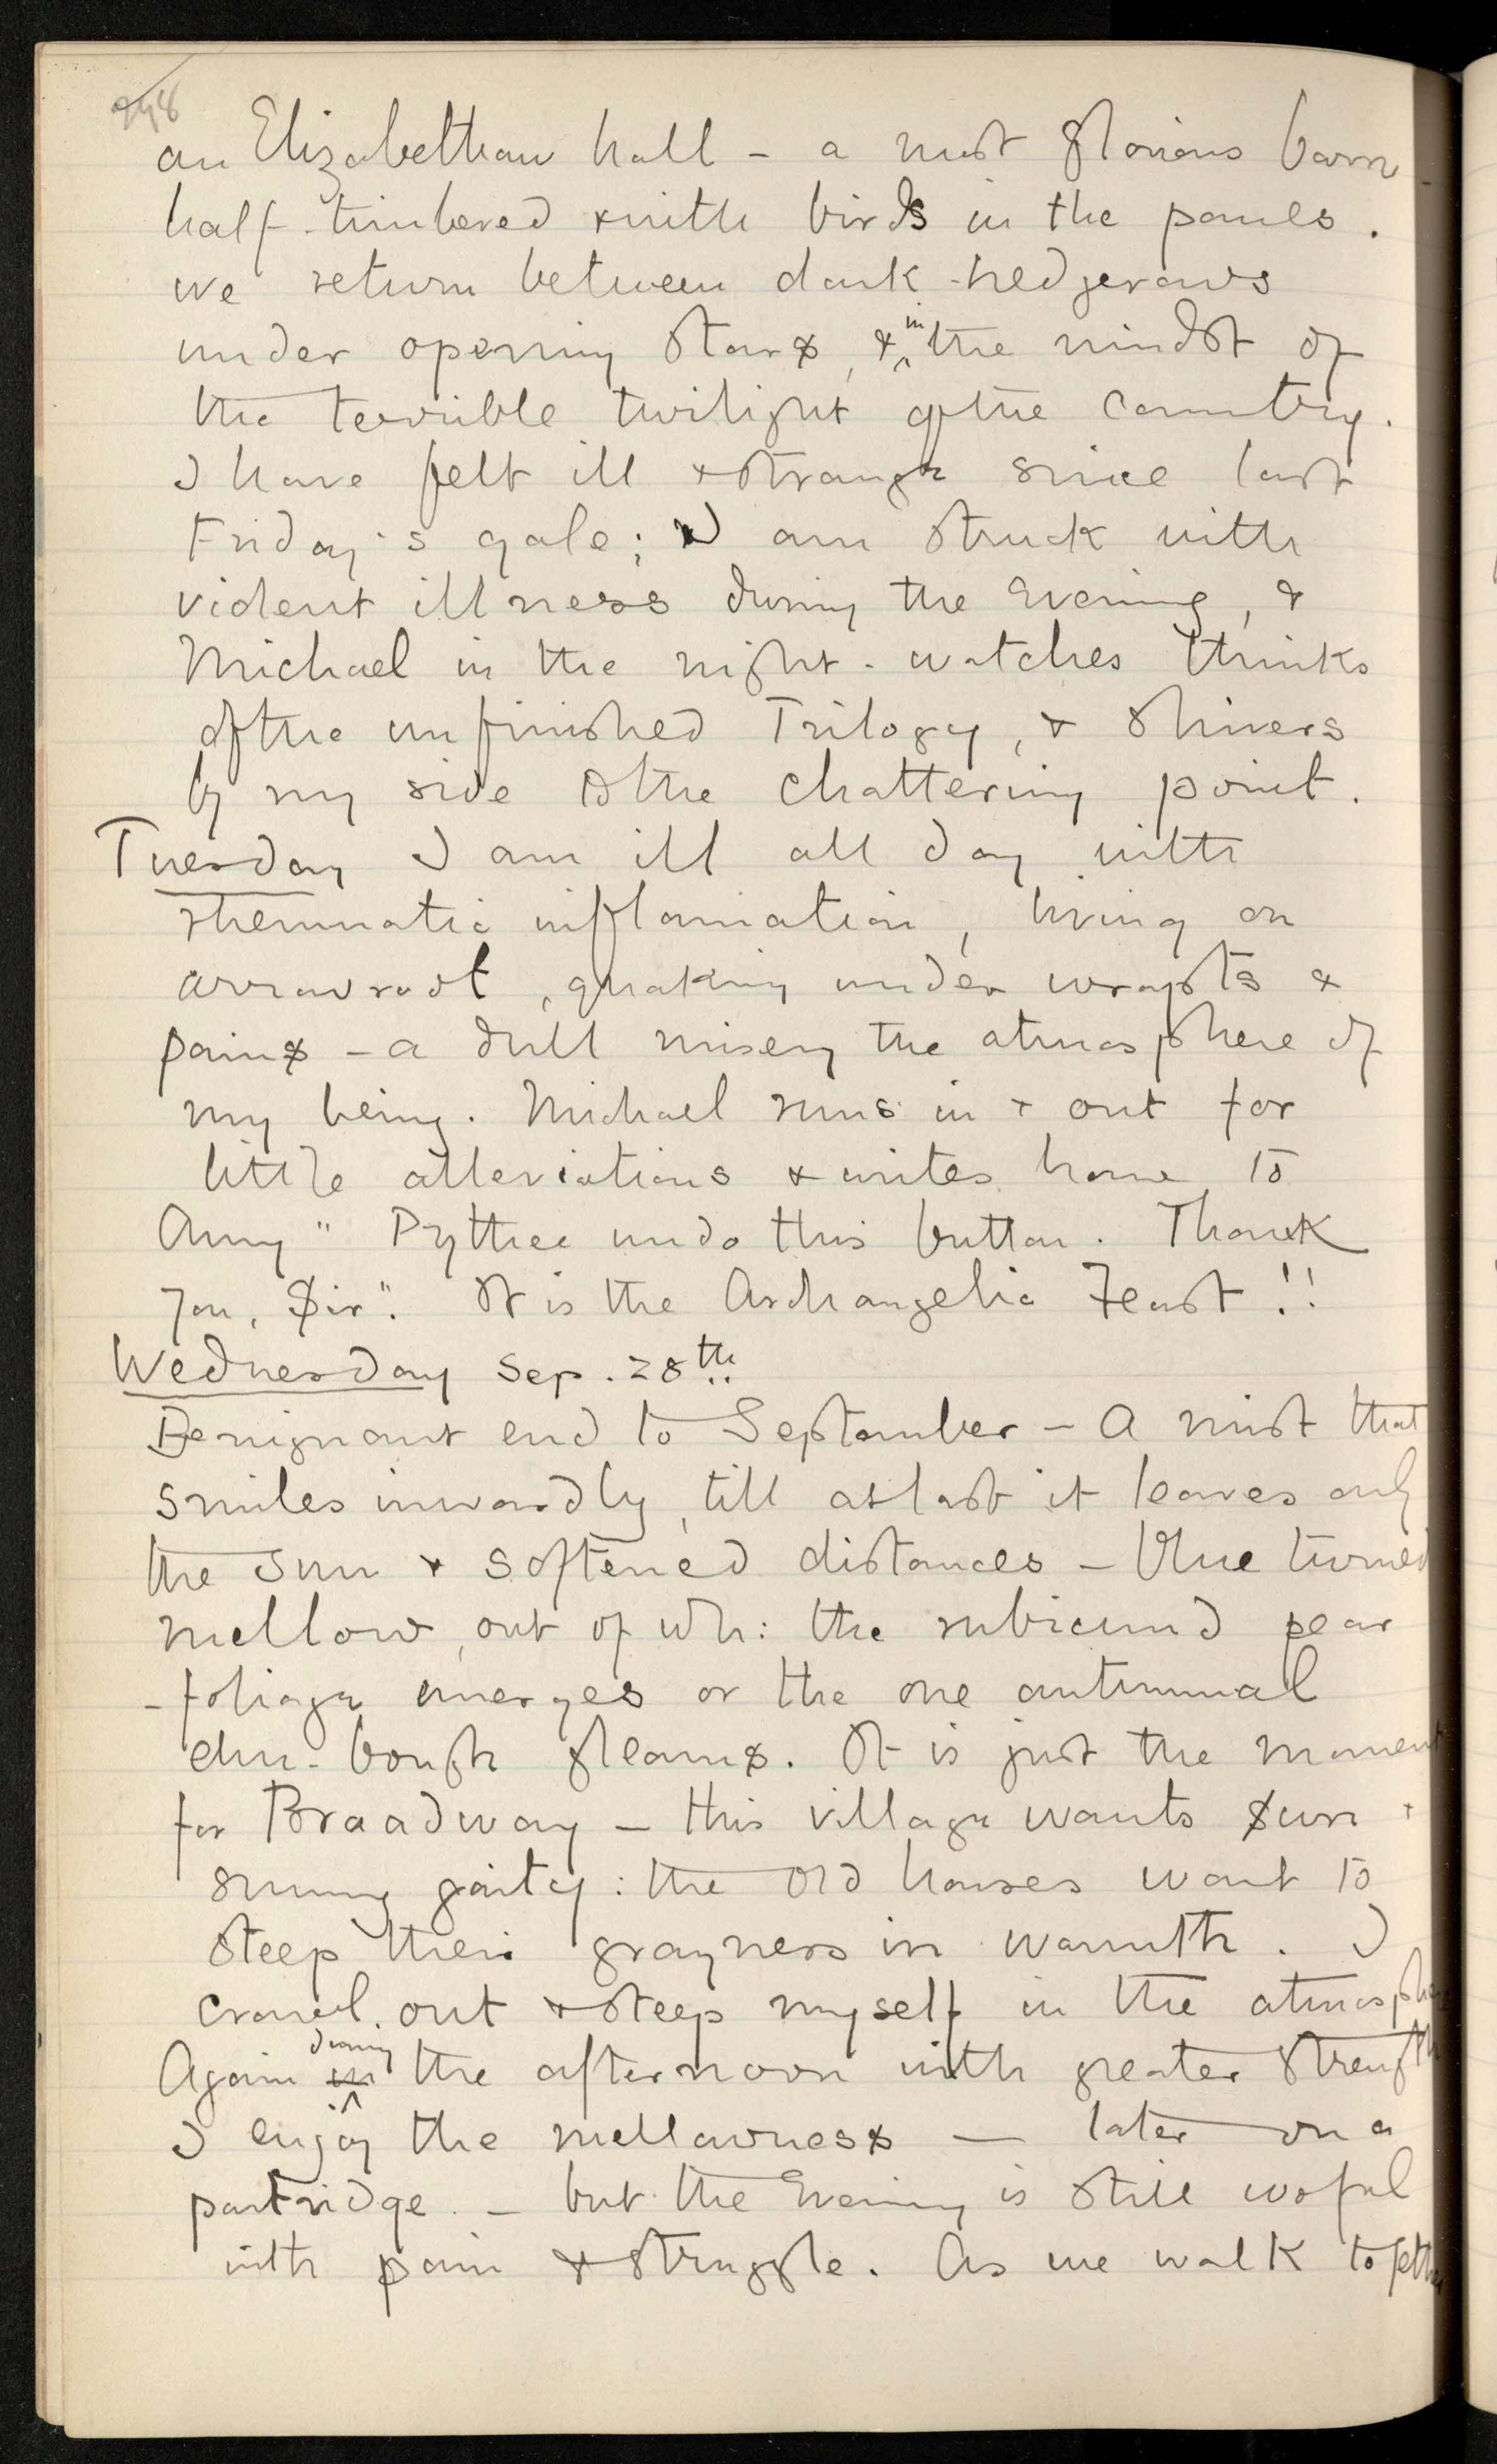 an Elizabethan hall – a most glorious barn
half-timbered & with birds in the panels.
we return between dark hedgerows
under opening stars, & in the midst of
the terrible twilight of the country.
I have felt ill & strange since last
Friday's gale; I am struck with
violent illness during the evening, &
Michael in the night-watches thinks
of the unfinished Trilogy, & shivers
by my side to the chattering point.
Tuesday I am ill all day with
rheumatic inflamation, living on
arrowroot, quaking under wraps &
pains – a dull misery the atmosphere of
my being. Michael runs in & out for
little alleviations & writes home to
Amy " Pythee undo this button. Thank
you, Sir". It is the Archangelic Feast!!
Wednesday Sep. 28th
Benignant end to September – A mist that
smiles inwardly, till at last it leaves only
the sun & softened distances – blue turned
mellow, out of wh: the rubicund pear
-foliage emerges or the one autumnal
elm-bough gleams. It is just the moment
for Broadway – this village wants sun &
sunny gaity: the old houses want to
steep their grayness in warmth. I
crawl out & steep myself in the atmosphe
Again during in the afternoon with greater strength
I enjoy the mellowness — later on a
partridge – but the Evening is still woful
with pain & struggle. As we walk together